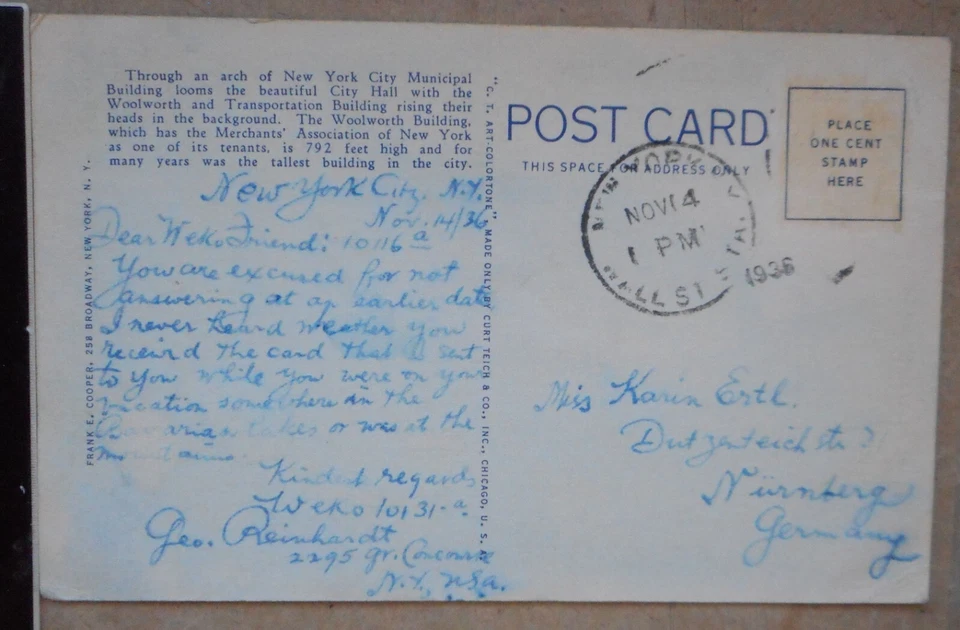 Through an arch of New York City Municipal
Building looms the beautiful City Hall with the
Woolworth and Transportation Building rising their
heads in the background. The Woolworth Building,
which has the Merchants' Association of New York
as one of its tenants, is 792 feet high and for
many years was the tallest building in the city.
New York City. N.Y.
Nov. 14/36
Dear Weko Friend: 10116 a
You are excused for not
answering at an earlier date
I never heard weather you
receivd the card that I sent
to you while you were on your
vacation somewhere in the
Bavarian Lakes or was at the
mountains.
Kindest regards
Weko 10131-a.
Geo. Reinhardt
2295 Gr. Concourse
N.Y., USA.
FRANK E. COOPER, 258 BROADWAY, NEW YORK, N. Y.
"C. T. ART-COLORTONE" MADE ONLY BY CURT TEICH & CO., INC., CHICAGO, U. S. A.
POST CARD
THIS SPACE FOR ADDRESS ONLY
PLACE
ONE CENT
STAMP
HERE
NEW YORK, N.Y.
NOV 14
1 PM
1936
WALL ST. STA.
Miss Karin Ertl.
Dutzenteichstr 7
Nürnberg
Germany